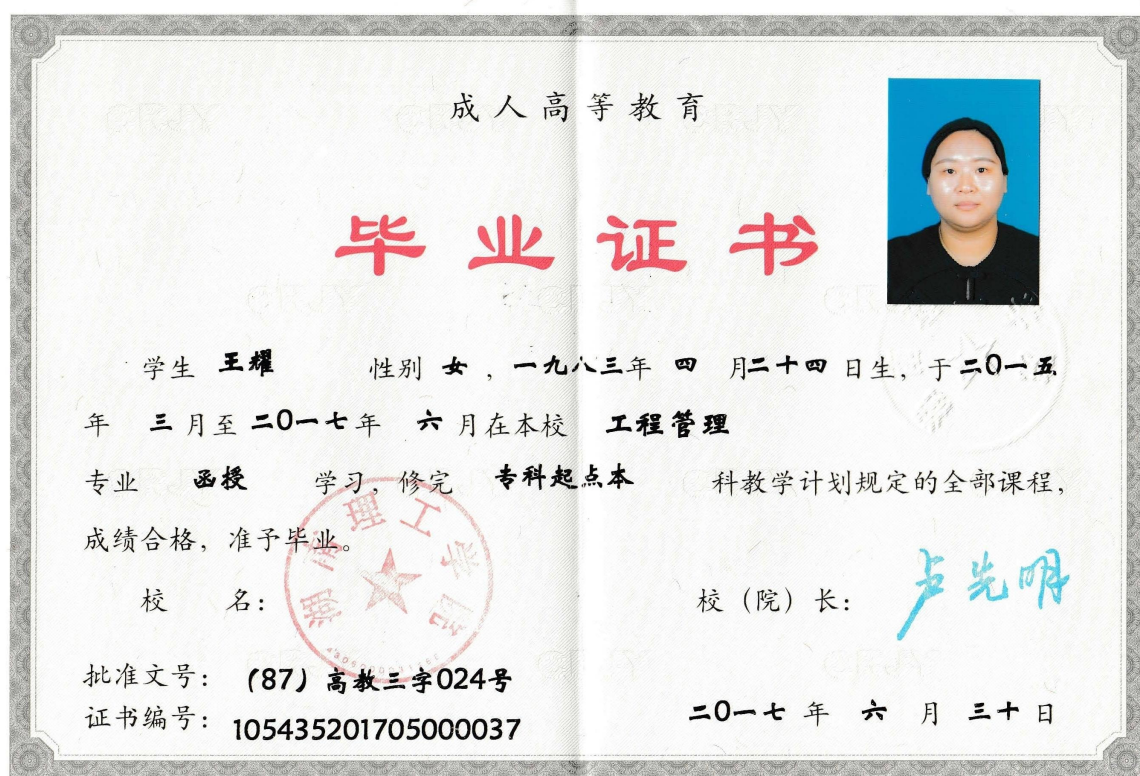 成人高等教育
毕业证书
学生 王耀 性别 女，一九八三年 四 月二十四日生，于二〇一五
年 三月至二〇一七年 六月在本校 工程管理
专业 函授 学习，修完 专科起点本 科教学计划规定的全部课程，
成绩合格，准予毕业。
湖南理工学院
校 名： 校（院）长： 卢先明
批准文号：（87）高教三字024号
证书编号：105435201705000037
二〇一七 年 六 月 三十日